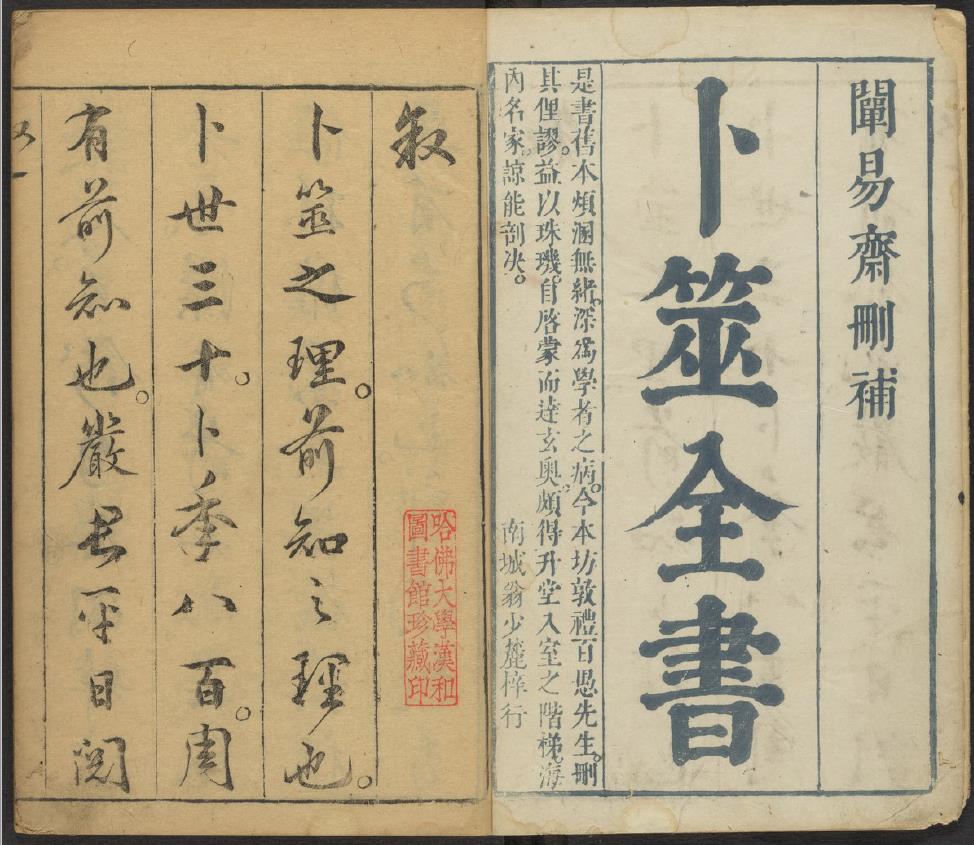 闡易齋刪補
卜筮全書
是書舊本煩溷無緒。深爲學者之病。今本坊敦禮百愚先生。刪
其俚謬。益以珠璣。自啓蒙而達玄奧。頗得升堂入室之階梯。海
內名家。諒能剖决。
南城翁少麓梓行
敘
卜筮之理。前知之理也。
卜世三十。卜季八百。周
有前知也。嚴君平日閱
哈佛大學漢和
圖書館珍藏印